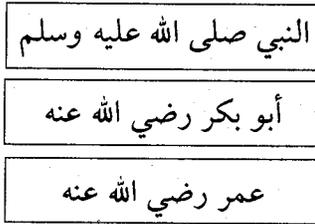 النبي صلى الله عليه وسلم
أبو بكر رضي الله عنه
عمر رضي الله عنه